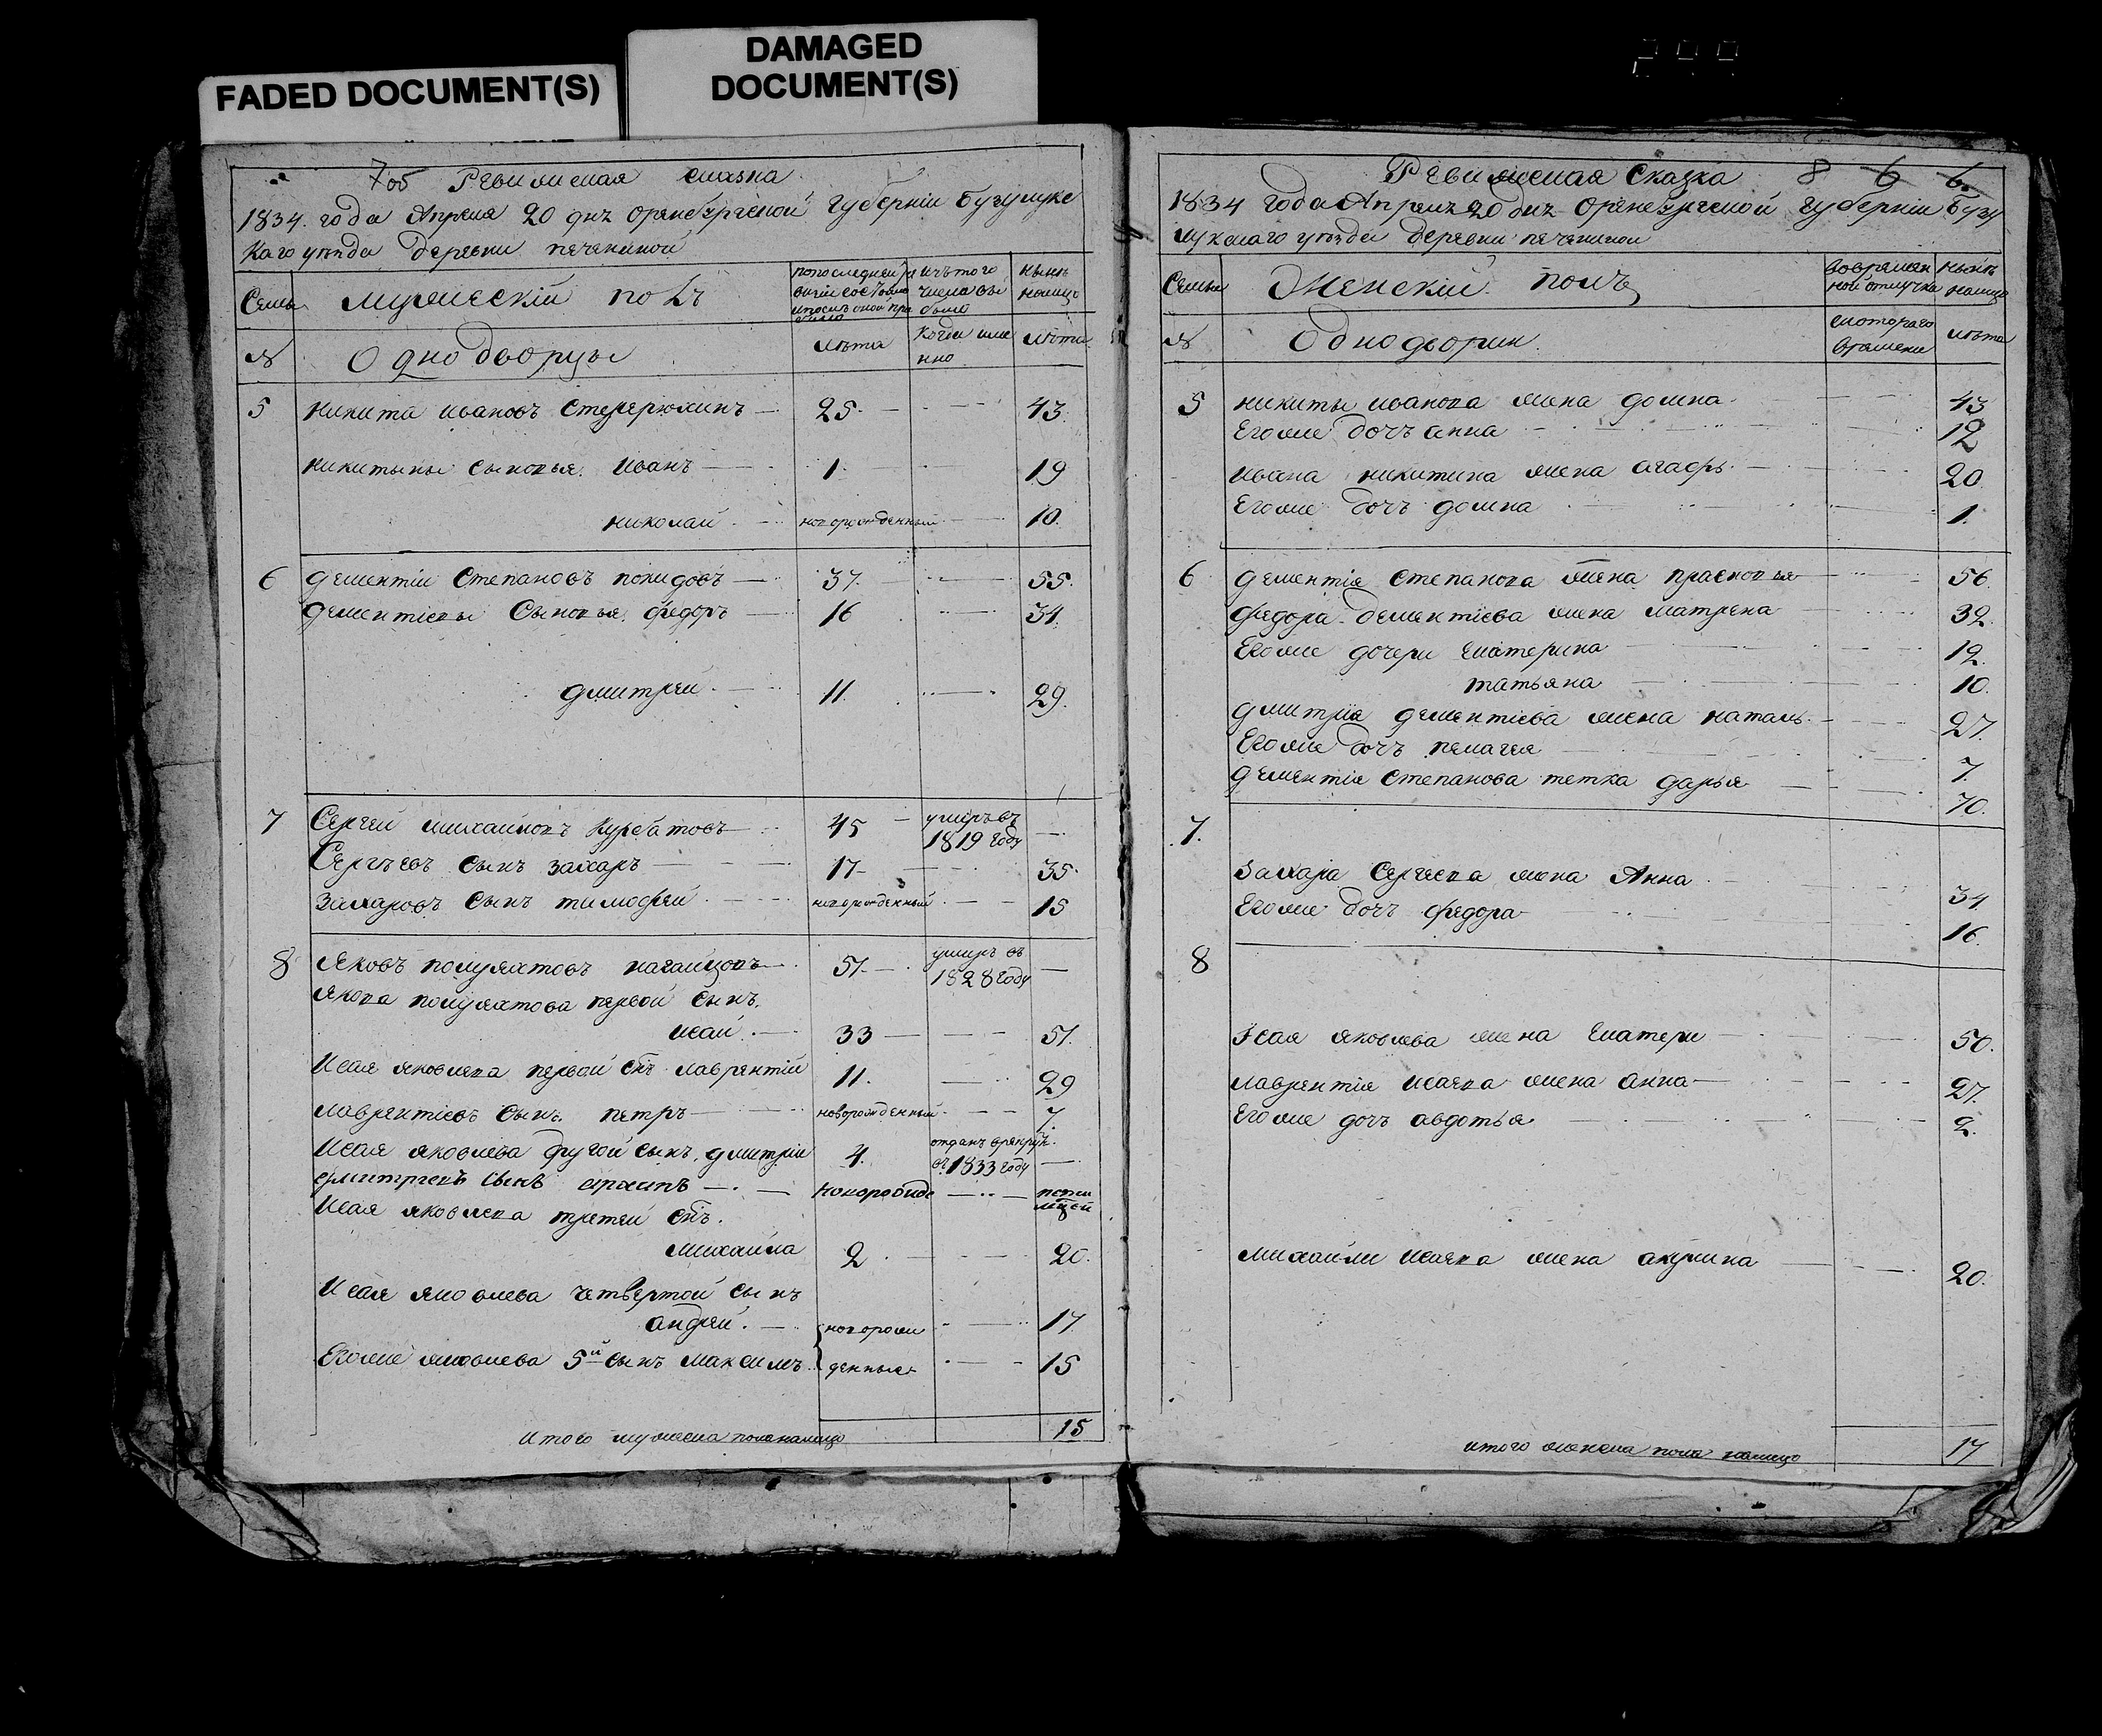 FADED DOCUMENT(S)
DAMAGED
DOCUMENT(S)
7об Ревижская сказка
1834. года Апреля 20 днѣ оренбургской губерніи Бугулукс
каго уѣзда деревни печениной
Семьи
мужескій полъ
попоследней ре
визіи состояло
ипослѣ оной при
было
изъ того
числа вы
было
нынѣ
налицо
№
Однодворцы
лѣта
Когда име
нно
лѣта
5 никита ивановъ 25 43
никитыны сыновья иванъ 1 19
николай новорожденный 10
6 дементіи степановъ 37 55
дементіевы сыновья федоръ 16 34
дмитрей 11 29
7 Сергей михайловъ курбатовъ 45 умиръ въ
1819 году
Сергѣевъ сынъ захаръ 17 35
захаровъ сынъ тимофей новорожденный 15
8 Яковъ полуяхтовъ 51 умиръ въ
1828 году
якова полуяхтова первой сынъ
исай 33 51
Исая яковлева первой снъ лаврентій 11 29
лаврентіевъ сынъ петръ новорожденный 7
Исая яковлева другой сынъ дмитріи 4 отданъ врекрут
въ 1833 году
сынъ
Исая яковлева третей снъ
михаила 2 20
Исая яковлева четвертой сынъ
андрей новорож 17
Егоже яковлева 5й сынъ максимъ денныя 15
итого мужеска пола налицо 15
Ревижская Сказка 8 6 6
1834 года Апреля 20 днѣ Оренбургской губерніи Бузу
лукскаго уѣзда деревни печениной
Семьи
Женскій полъ
вовремян
ной отлучке
нынѣ
налицо
№
Однодворки
скотораго
времени
лѣта
5 никиты иванова жена домна 43
Егоже дочъ анна 12
ивана никитина жена агафь 20
Егоже дочъ домна 1
6 дементія степанова жена прасковья 56
федора дементіева жена матрена 32
Егоже дочери екатерина 12
татьяна 10
дмитрія дементіева жена наталь 27
Егоже дочъ пелагея 7
дементія степанова тетка дарья 70
7
захара сергеева жена Анна 34
Егоже дочъ федора 16
8
Исая яковлева жена екатери 50
лаврентія исаева жена анна 27
Егоже дочъ авдотья 2
михайли исаева жена акулина 20
итого женска пола налицо 17